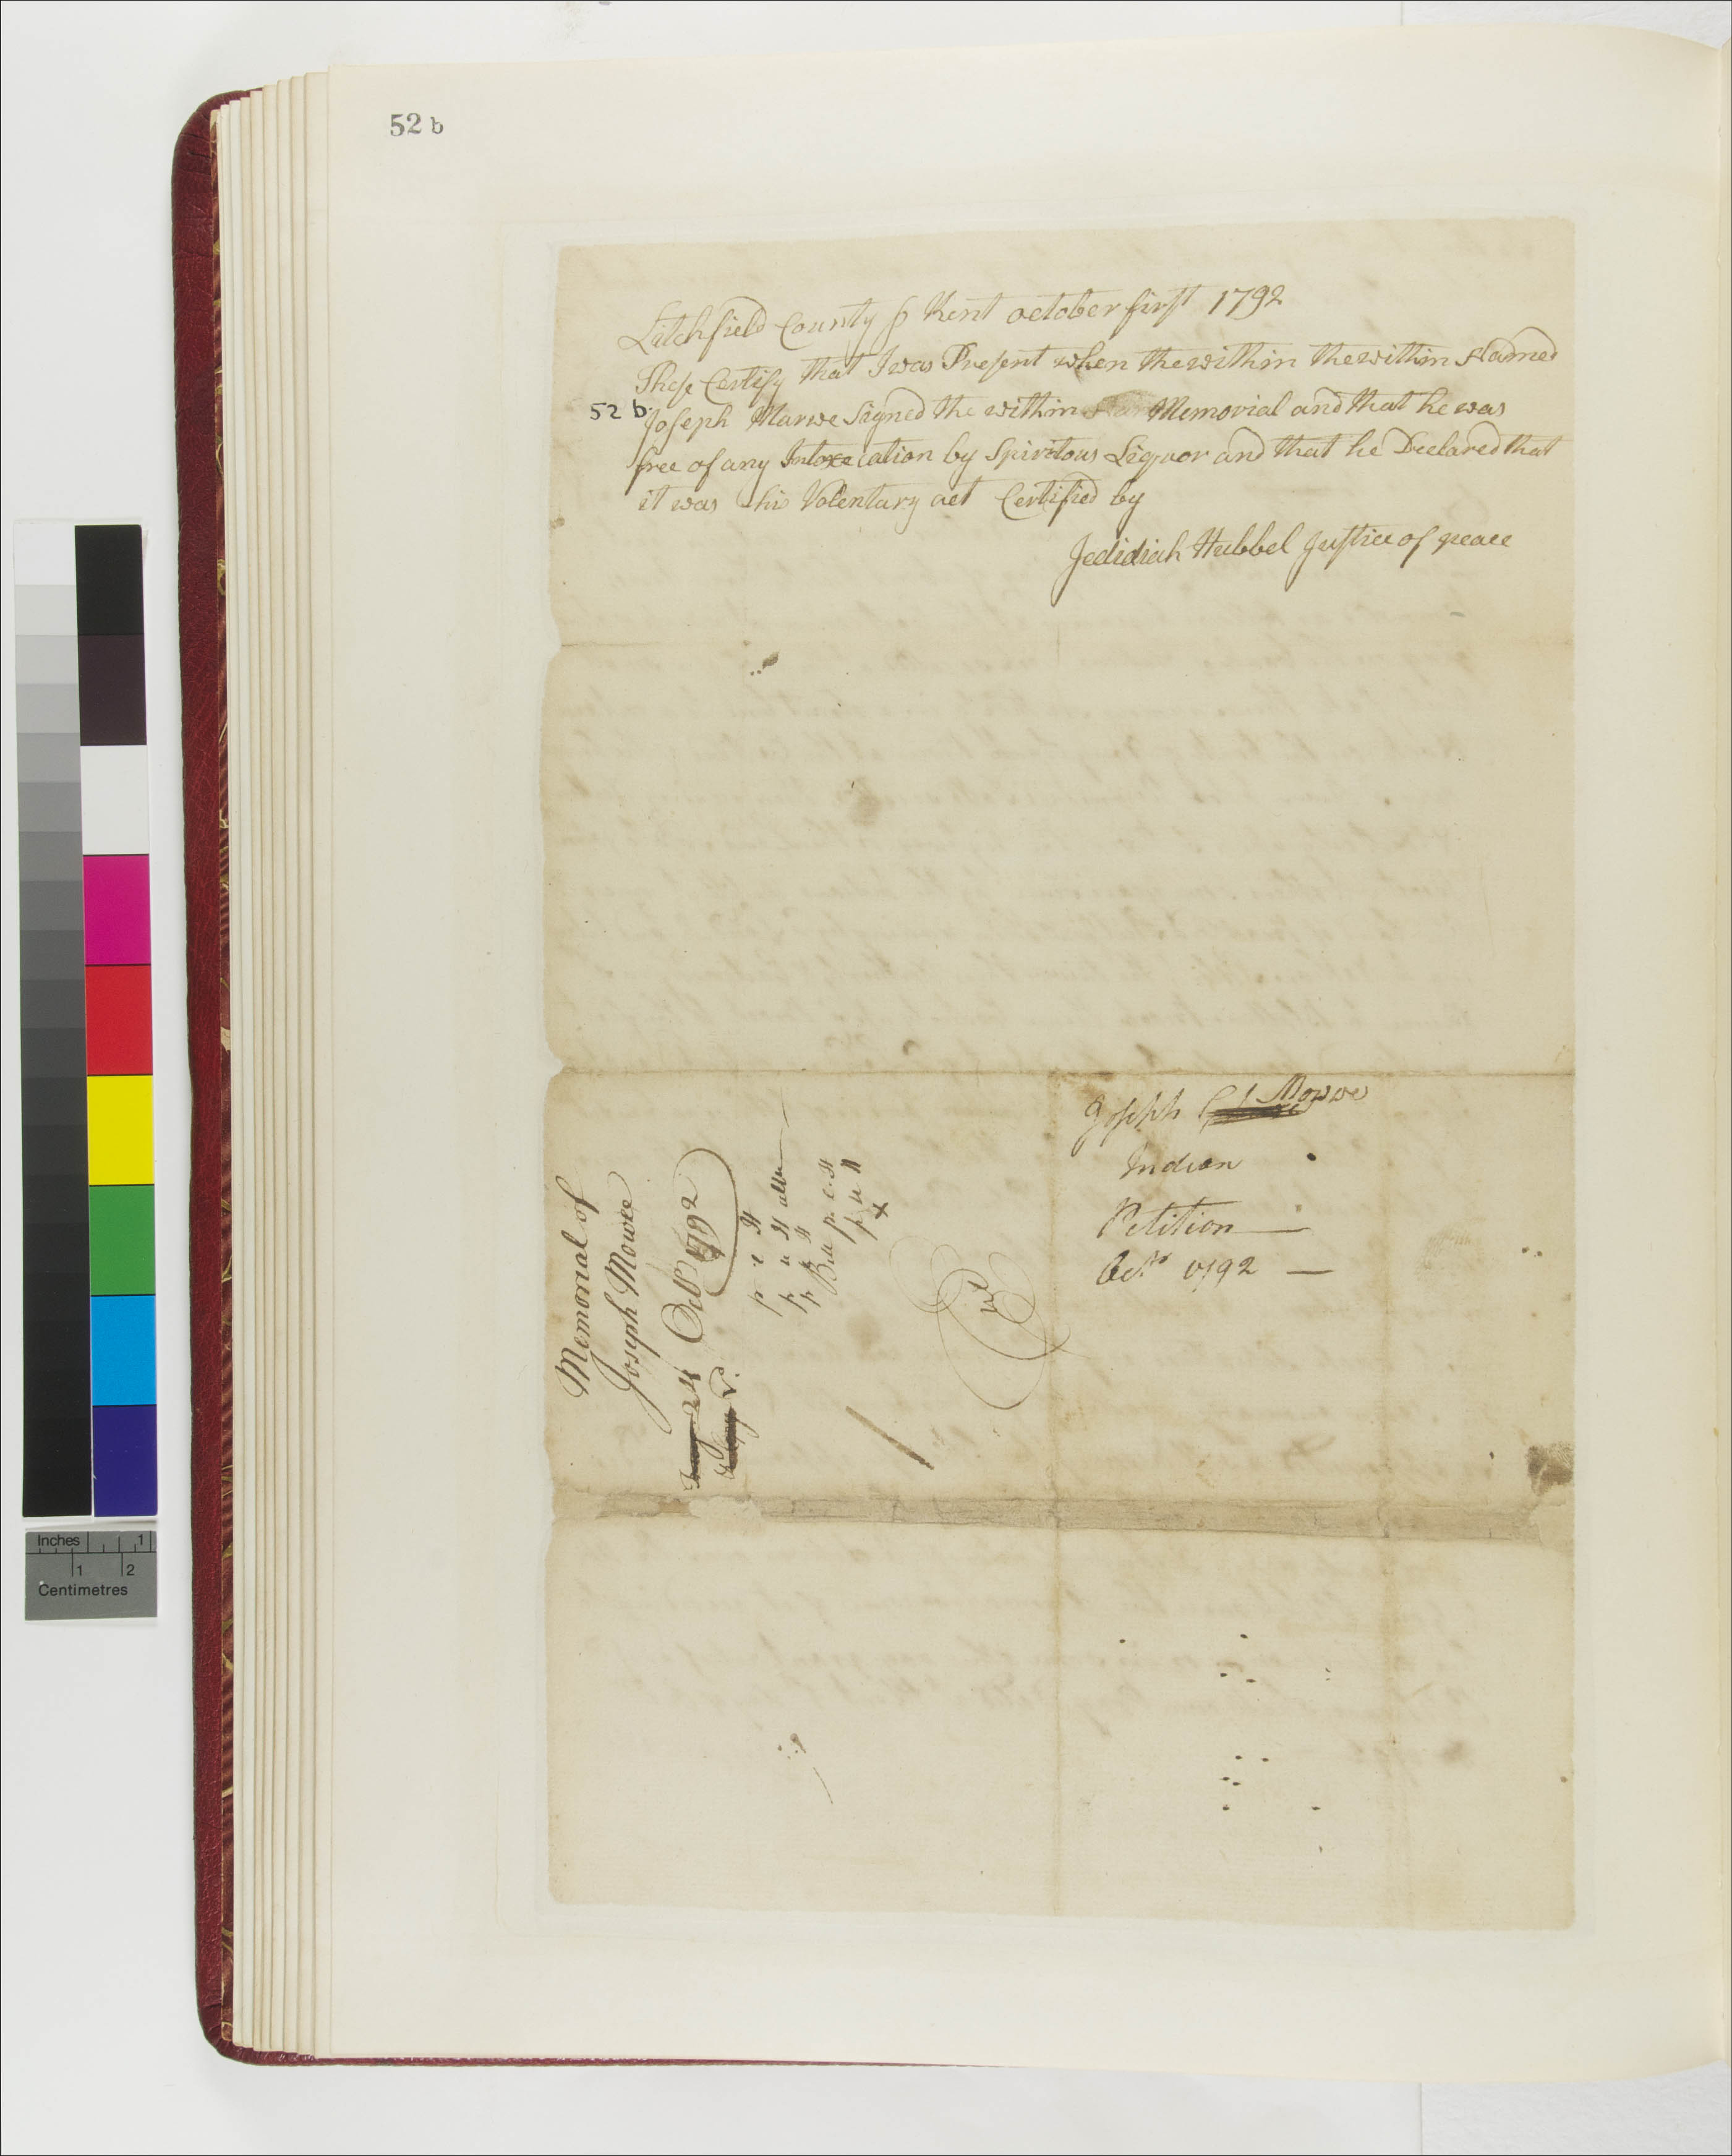 52 b
Litchfield County ss Kent october first 1792
These Certify that I was Present when the within the within Named
52 b.
Joseph Marwe Signed the within Memorial and that he was
free of any Intoxecation by Spiritous Liquor and that he Declared that
it was his Volentary act Certified by
Jedidiah Hubbel Justice of peace
Joseph Mowwe
Indian
Petition
Octr 1792
Memorial of
Joseph Mowee
24 Octr 1792
p u H
p u H
Bill p. c. H
p u H
x
Inches 1
1 2
Centimetres